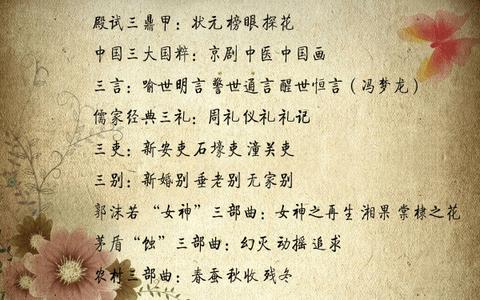 殿试三鼎甲：状元榜眼探花
中国三大国粹：京剧中医中国画
三言：喻世明言 警世通言 醒世恒言（冯梦龙）
儒家经典三礼：周礼仪礼礼记
三吏：新安吏 石壕吏 潼关吏
三别：新婚别 垂老别 无家别
郭沫若“女神”三部曲：女神之再生 湘果 棠棣之花
茅盾“蚀”三部曲：幻灭 动摇 追求
农村三部曲：春蚕 秋收 残冬